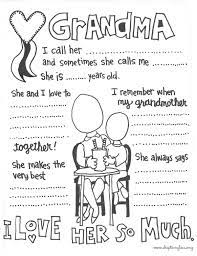 GRANDMA
I call her ............
and sometimes she calls me ............
She is ........ years old.
She and I love to
I remember when
my grandmother
together!
She makes the
very best
She always says
I LOVE HER SO MUCH.